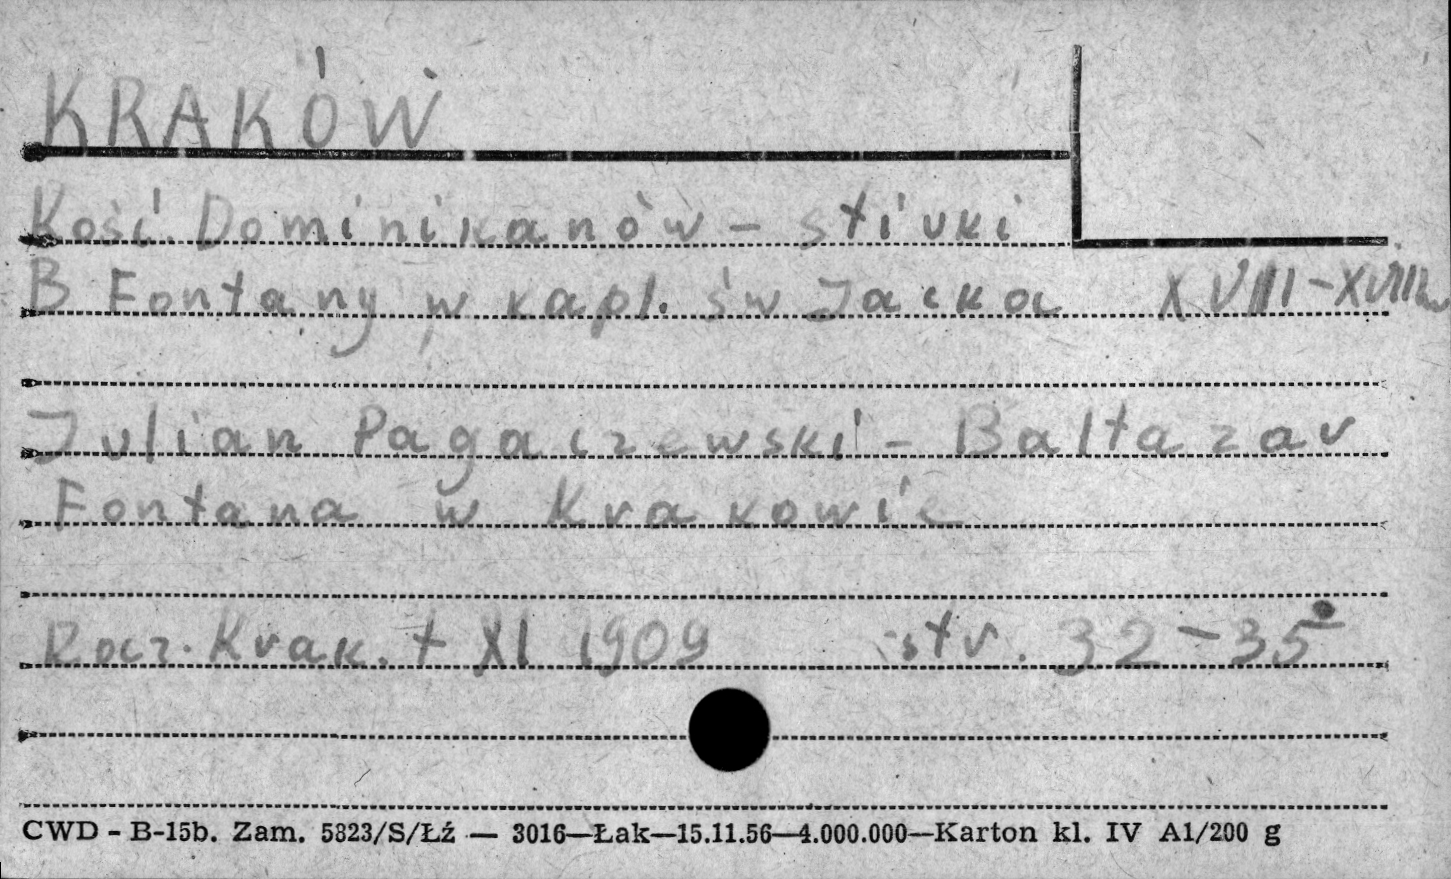 KRAKÓW
Kość. Dominikanów – stiuki
B Fontany w kapl. św Jacka XVIII – XVIII w
Julian Pagaczewski – Baltazar
Fontana w Krakowie
Rocz. Krak. t XI 1909 str. 32 – 35
CWD - B-15b. Zam. 5823/S/Łź — 3016—Łak—15.11.56—4.000.000—Karton kl. IV A1/200 g